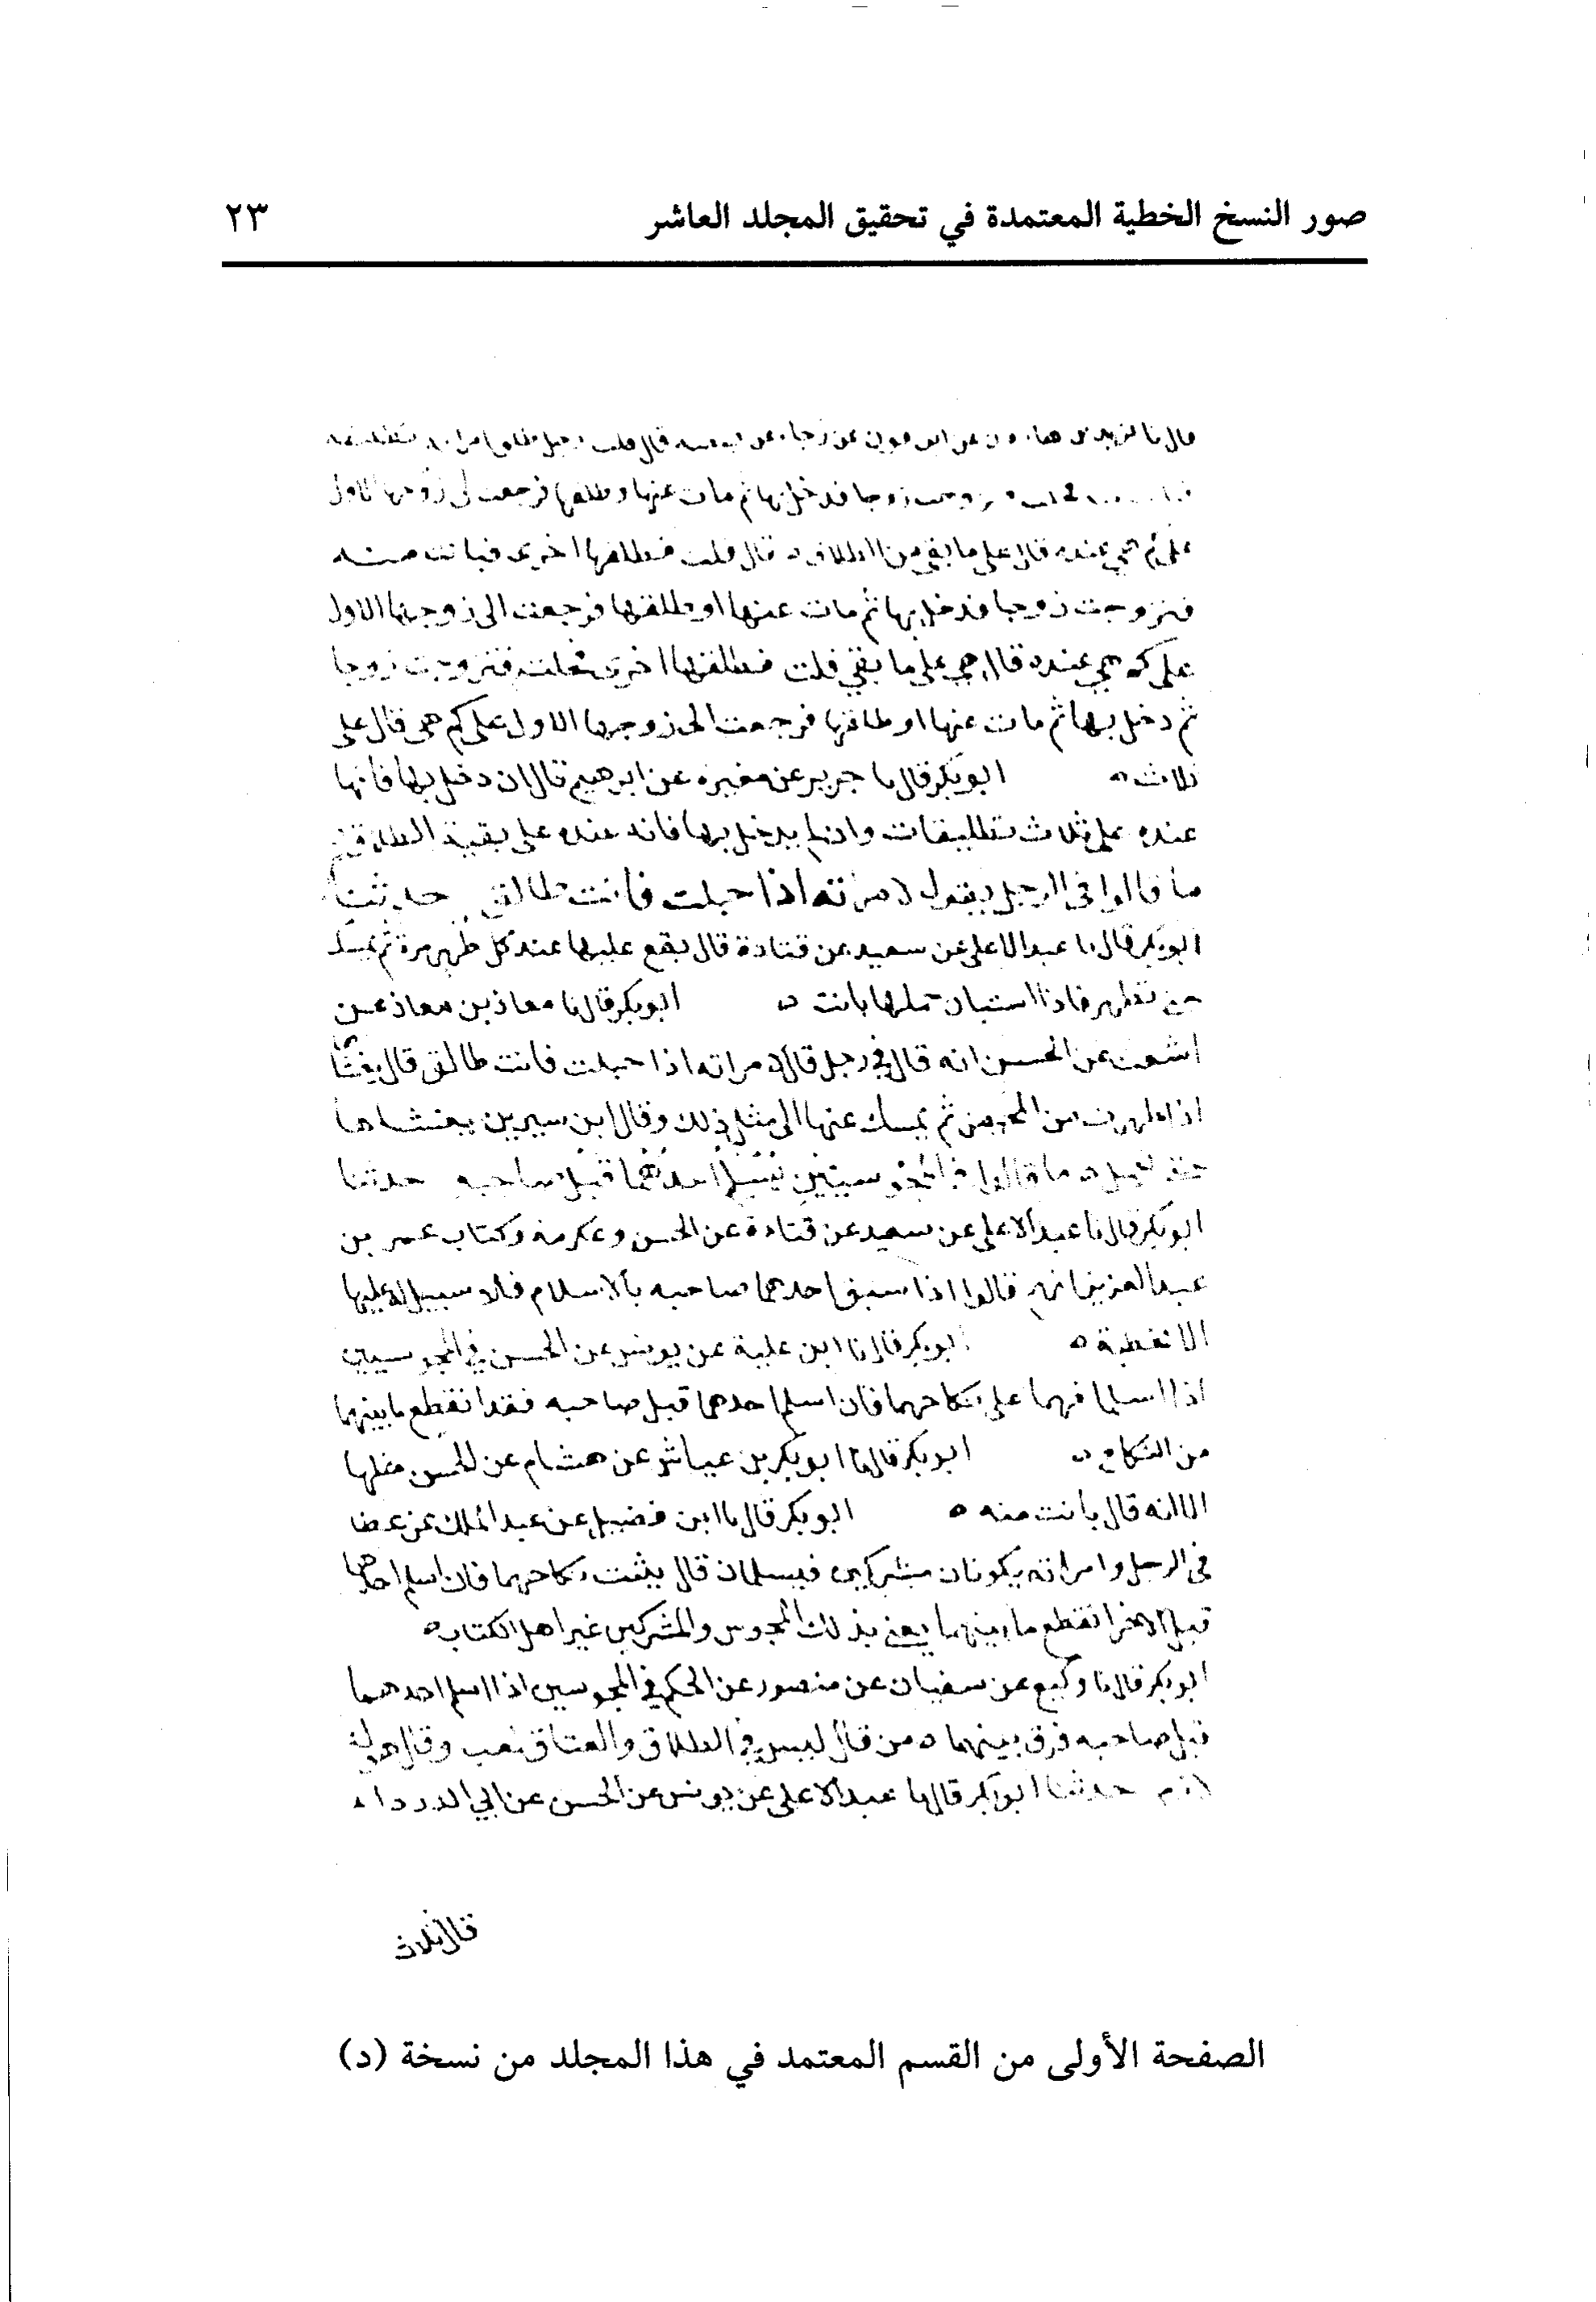 صور النسخ الخطية المعتمدة في تحقيق المجلد العاشر ٢٣
قال نا يزيد بن هارون عن ابن عون عن رجاء عن قال قلت رجل طلق
زوجا فدخل بها ثم مات عنها وطلقها فرجعت الى زوجها الاول
هي عنده قال على ما بقي من الطلاق قال قلت فطلقها اخرى فبانت منه
فتزوجت زوجا فدخل بها ثم مات عنها او طلقها فرجعت الى زوجها الاول
على كم هي عنده قال هي على ما بقي قلت فطلقها اخرى فتزوجت زوجا
ثم دخل بها ثم مات عنها او طلقها فرجعت الى زوجها الاول على كم هي قال على
ثلاث ابو بكر قال نا جرير عن مغيرة عن ابرهيم قال ان دخل بها فانها
عنده على ثلاث تطليقات وان لم يدخل بها فانه عنده على بقية الطلاق
ما قالوا في الرجل يقول لامرته اذا حبلت فانت طالق حدثنا
ابو بكر قال نا عبد الاعلى عن سعيد عن قتادة قال يقع عليها عند كل طهر مرة ثم يمسك
حتى تطهر فاذا استبان حملها بانت ابو بكر قال نا معاذ بن معاذ عن
اشعث عن الحسن انه قال في رجل قال لامراته اذا حبلت فانت طالق قال يغشا
اذا طهرت من المحيض ثم يمسك عنها الى مثل ذلك وقال ابن سيرين يغشاها
حتى تحبل ما قالوا في المجوسيين يسلم احدهما قبل صاحبه حدثنا
ابو بكر قال نا عبد الاعلى عن سعيد عن قتادة عن الحسن وعكرمة وكتاب عمر بن
عبد العزيز انهم قالوا اذا سبق احدهما صاحبه بالاسلام فلا سبيل له عليها
الا بخطبة ابو بكر قال نا ابن علية عن يونس عن الحسن في المجوسيين
اذا اسلما فهما على نكاحهما فان اسلم احدهما قبل صاحبه فقد انقطع ما بينهما
من النكاح ابو بكر قال نا ابو بكر بن عياش عن هشام عن الحسن مثلها
الا انه قال بانت منه ابو بكر قال نا ابن فضيل عن عبد الملك عن عطا
في الرجل وامراته يكونان مشركين فيسلمان قال يثبت نكاحهما فان اسلم احدهما
قبل الاخر انقطع ما بينهما يعني بذلك المجوس والمشركين غير اهل الكتاب
ابو بكر قال نا وكيع عن سفيان عن منصور عن الحكم في المجوسيين اذا اسلم احدهما
قبل صاحبه فرق بينهما من قال ليس في الطلاق والعتاق لعب وقال هو له
لازم حدثنا ابو بكر قال نا عبد الاعلى عن يونس عن الحسن عن ابي الدرداء
قال ثلاث
الصفحة الأولى من القسم المعتمد في هذا المجلد من نسخة (د)